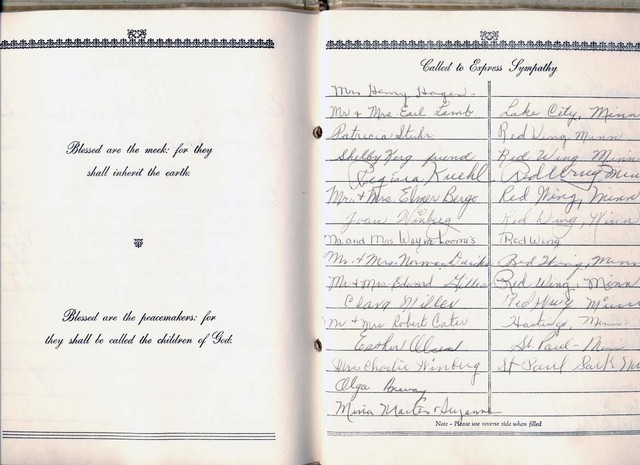 Blessed are the meek: for they
shall inherit the earth.
Blessed are the peacemakers: for
they shall be called the children of God.
Called to Express Sympathy
Mrs Henry Hagen -
Mr & Mrs Earl Lamb Lake City, Minn
Patricia Stuhr Red Wing Minn
Shelby friend Red Wing Minn
Regina Kuehl Red Wing Minn
Mr. & Mrs. Elmer Berge Red Wing, Minn
Joan Winberg Red Wing, Minn
Mr. and Mrs. Wayne Loomis Red Wing
Mr. & Mrs. Norman Red Wing, Minn
Mr & Mrs Edward Red Wing, Minn
Clara Miller Red Wing Minn
Mr & Mrs Robert Cater Hastings, Minn.
Esther Olson St. Paul - Minn
Mrs Charlie Winberg St Paul Park
Olga
Note - Please use reverse side when filled